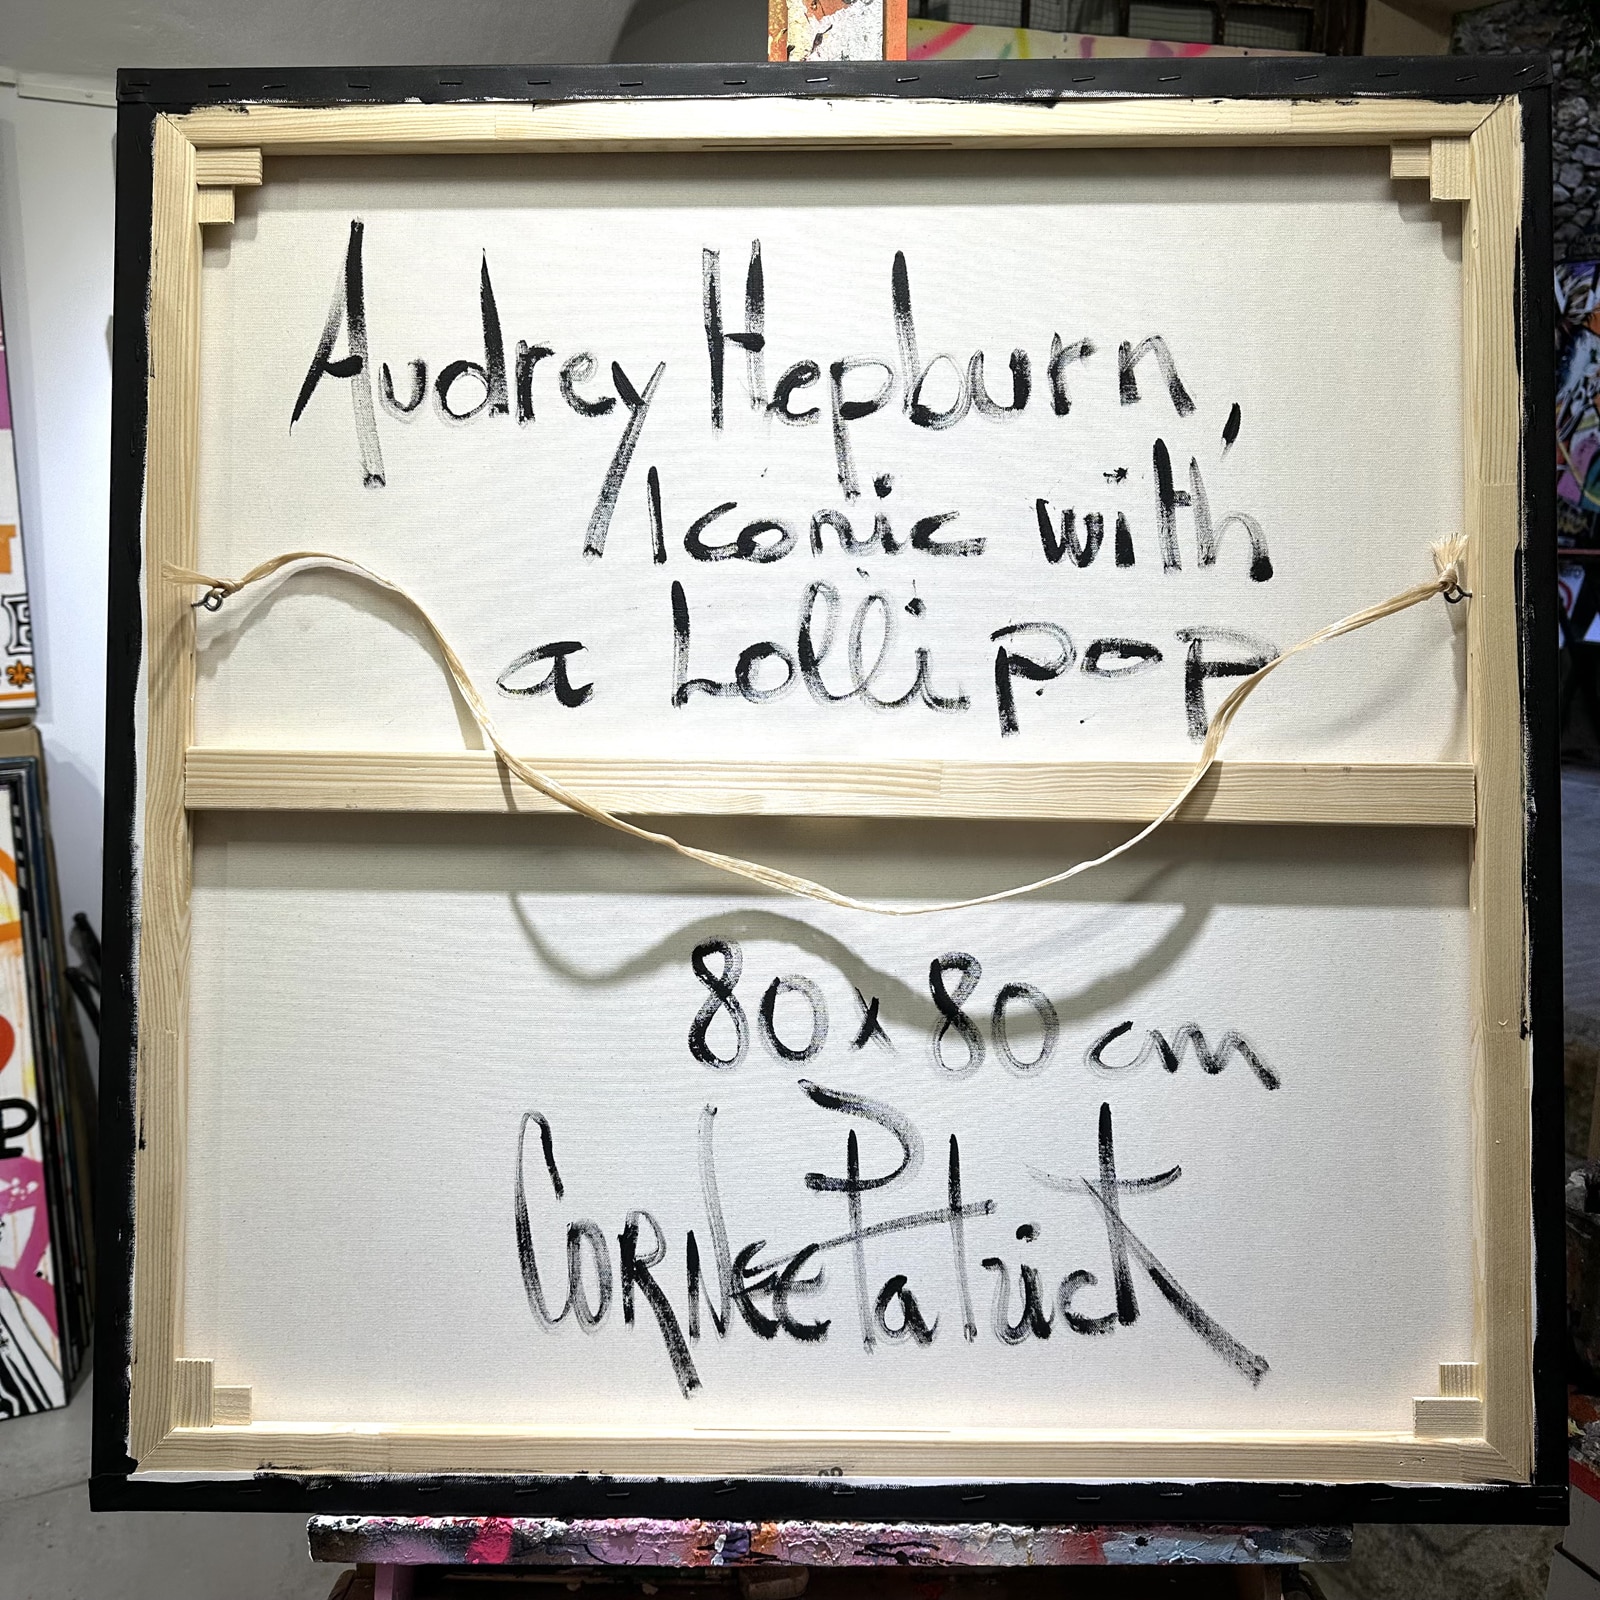 Audrey Hepburn,
Iconic with
a Lollipop
80x80 cm
CORNEE Patrick